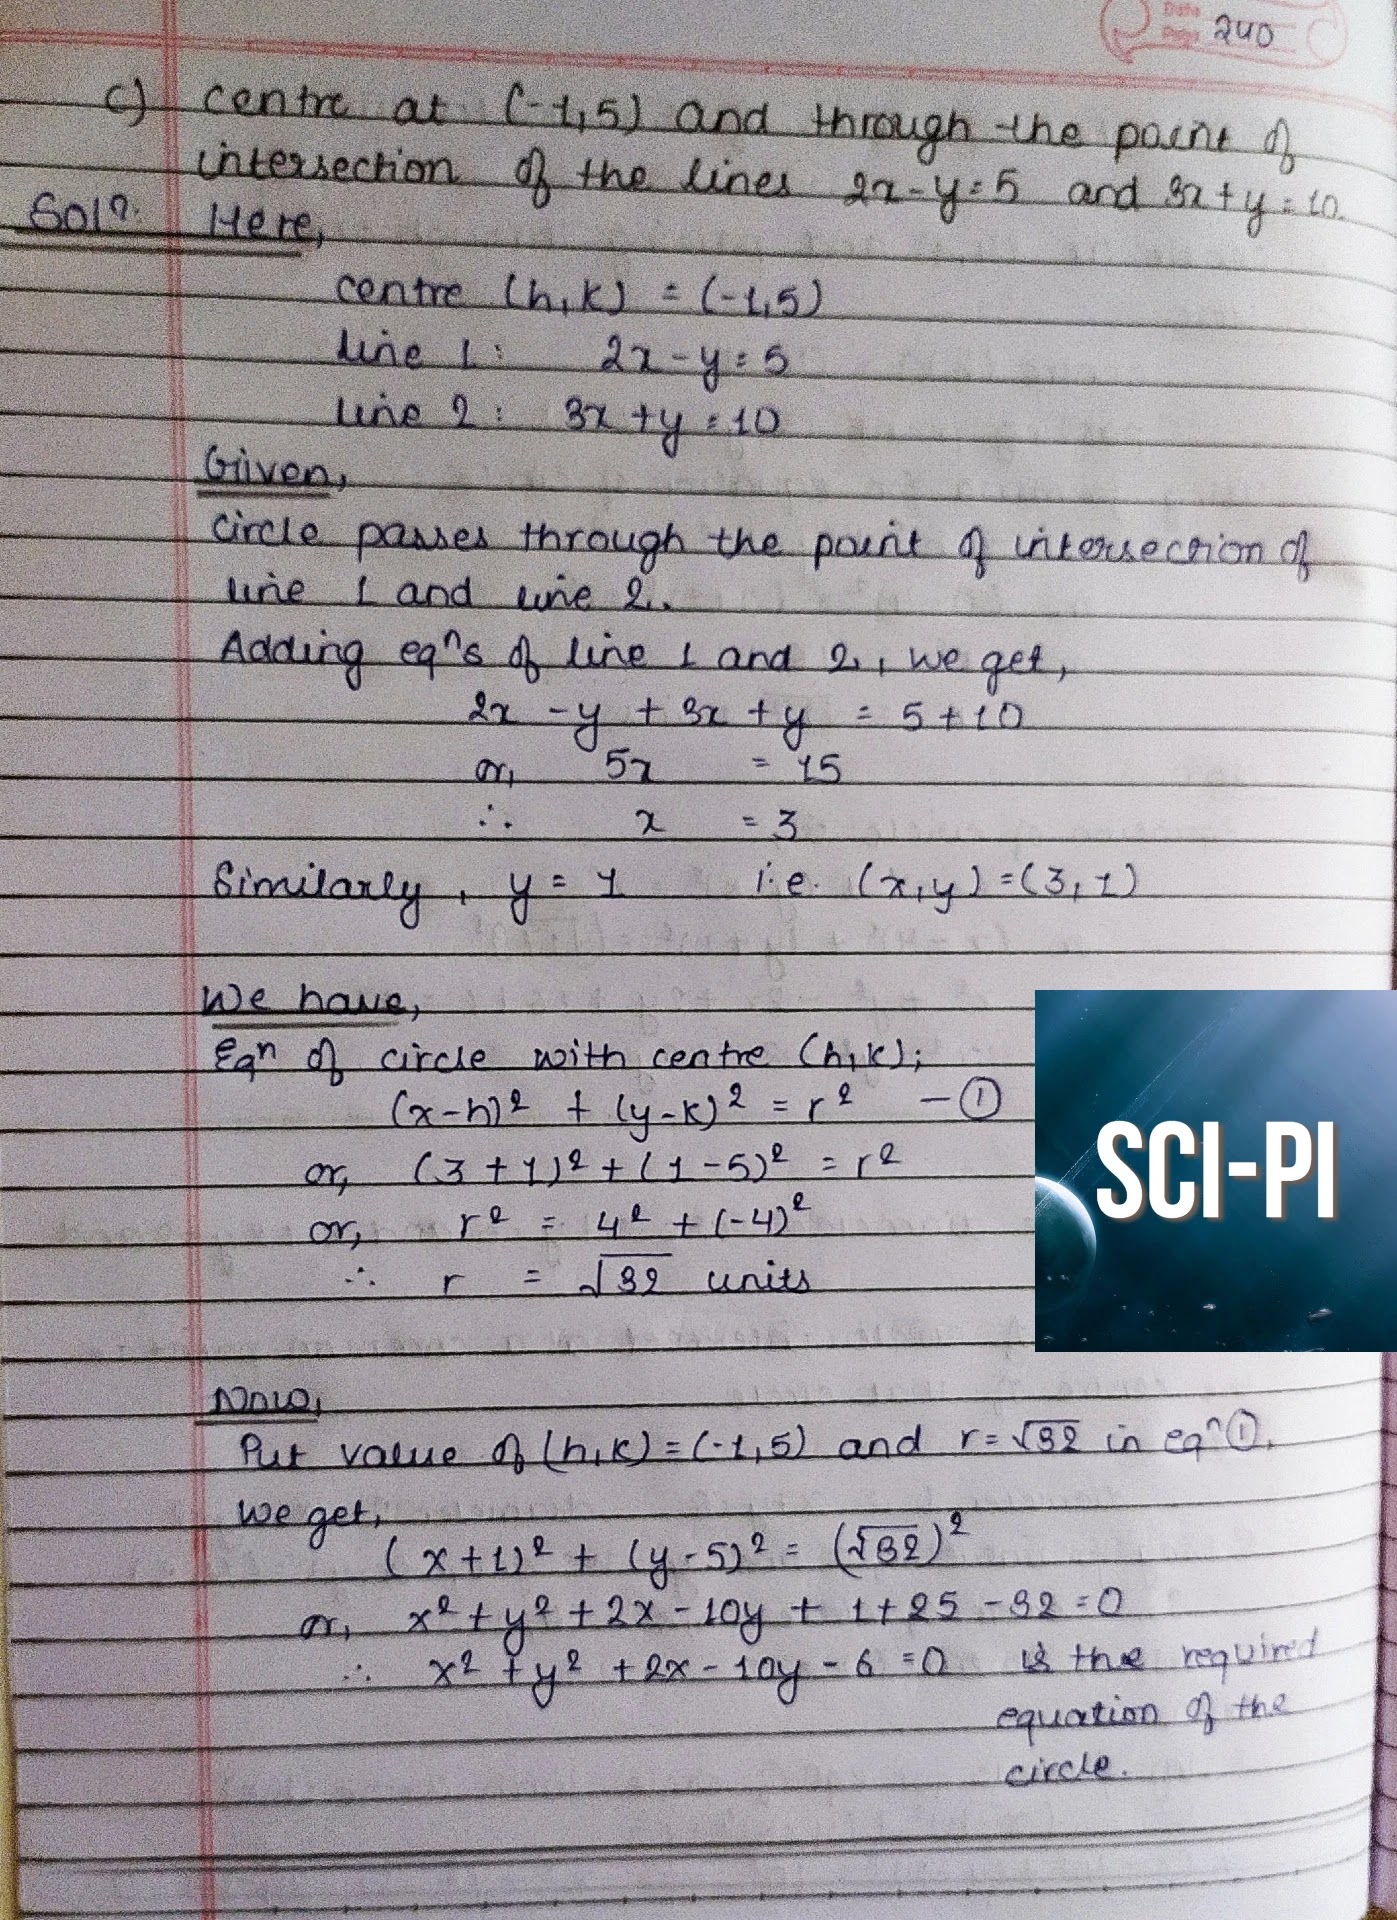 Date
Page 240
c) centre at (-1,5) and through the point of
intersection of the lines 2x-y=5 and 3x+y=10.
Solⁿ. Here,
centre (h,k) = (-1,5)
line 1: 2x-y=5
line 2: 3x+y=10
Given,
circle passes through the point of intersection of
line 1 and line 2.
Adding eqⁿs of line 1 and 2, we get,
2x -y + 3x + y = 5+10
or, 5x = 15
∴ x = 3
Similarly, y = 1 i.e. (x,y)=(3,1)
We have,
Eqⁿ of circle with centre (h,k);
(x-h)² + (y-k)² = r² —①
or, (3+1)²+(1-5)² = r²
or, r² = 4² + (-4)²
∴ r = √32 units
SCI-PI
Now,
Put value of (h,k)=(-1,5) and r=√32 in eqⁿ①.
we get,
(x+1)² + (y-5)² = (√32)²
or, x²+y²+2x-10y + 1+25-32=0
∴ x²+y²+2x-10y-6=0 is the required
equation of the
circle.